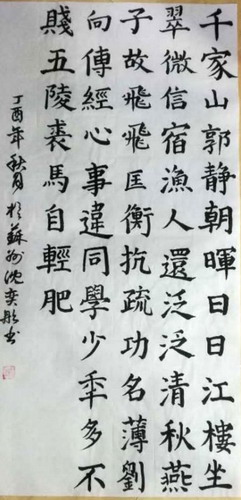 千家山郭静朝暉日日江樓坐
翠微信宿漁人還泛泛清秋燕
子故飛飛匡衡抗疏功名薄劉
向傳經心事違同學少秊多不
賤五陵裘馬自輕肥
丁酉年秋月於蘇州沈奕彤书